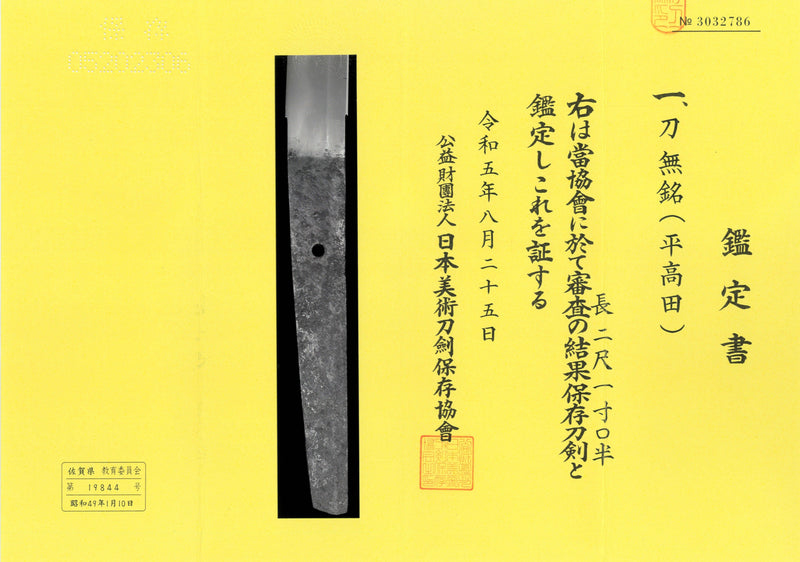 № 3032786
鑑定書
一、刀 無銘（平高田）
長 二尺一寸口半
右は當協會に於て審査の結果保存刀剣と
鑑定しこれを証する
令和五年八月二十五日
公益財團法人 日本美術刀劍保存協會
佐賀県 教育委員会
第 19844 号
昭和49年1月10日